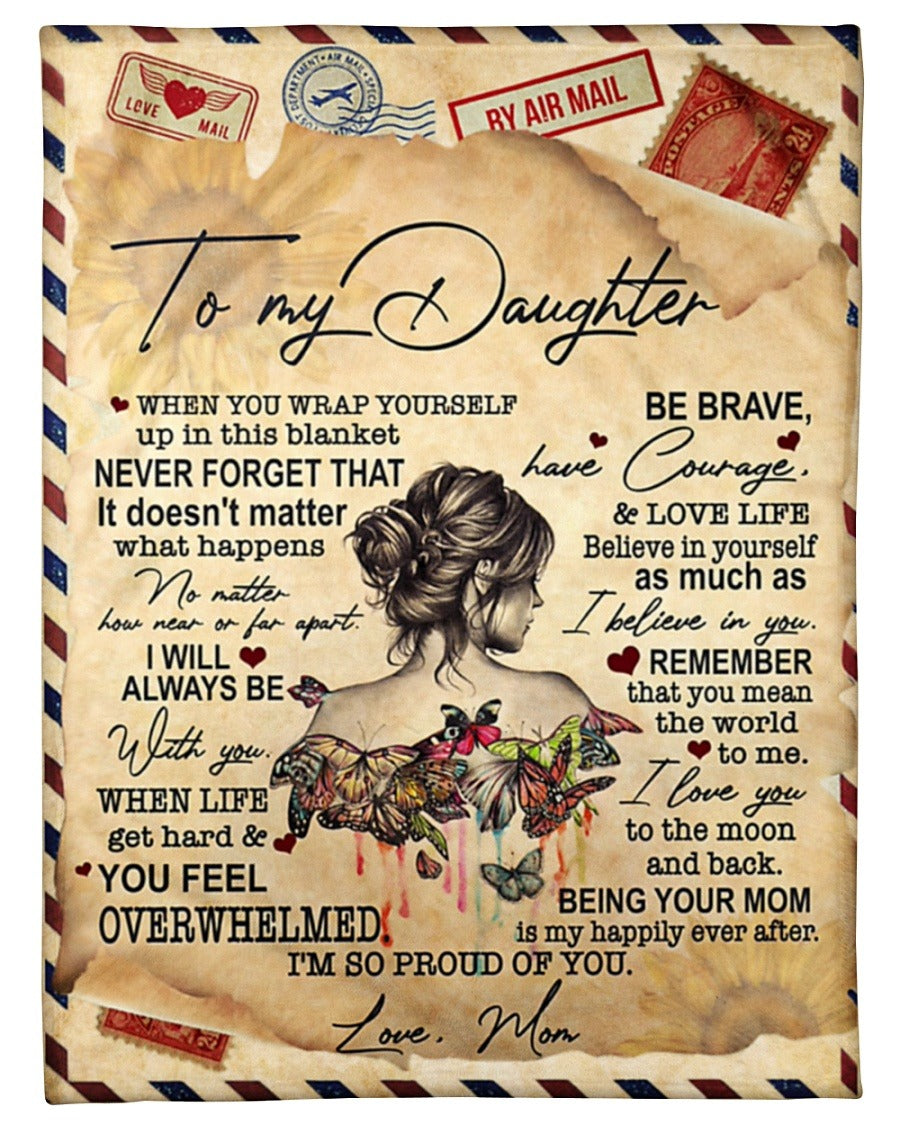 LOVE
MAIL
DEPARTMENT • AIR MAIL • SPECIAL
BY AIR MAIL
POSTAGE
24
CENTS
To my Daughter
WHEN YOU WRAP YOURSELF
up in this blanket
NEVER FORGET THAT
It doesn't matter
what happens
No matter
how near or far apart.
I WILL
ALWAYS BE
With you.
WHEN LIFE
get hard &
YOU FEEL
OVERWHELMED.
BE BRAVE,
have Courage.
& LOVE LIFE
Believe in yourself
as much as
I believe in you.
REMEMBER
that you mean
the world
to me.
I love you
to the moon
and back.
BEING YOUR MOM
is my happily ever after.
I'M SO PROUD OF YOU.
Love, Mom